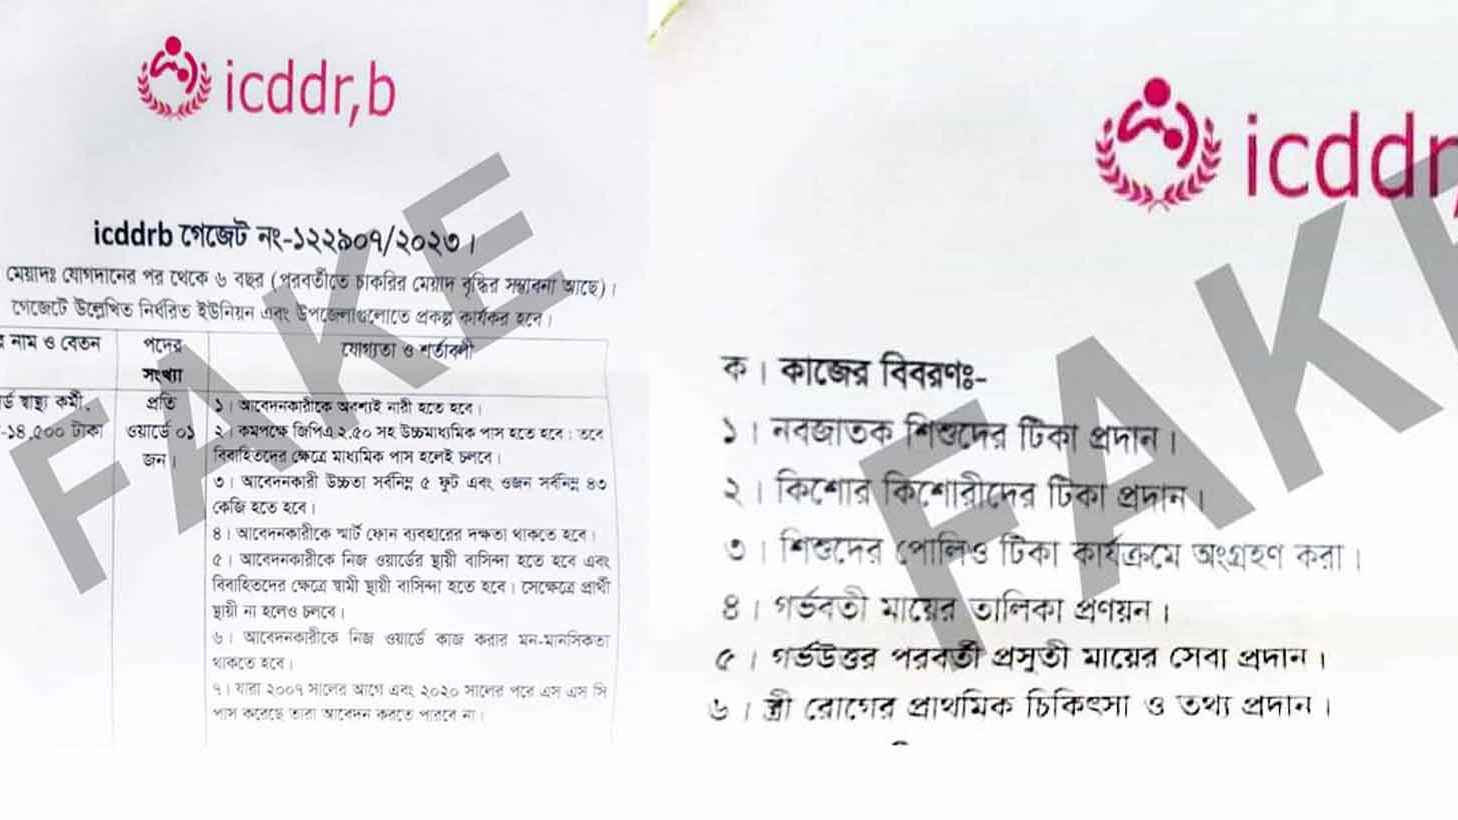 icddr,b
icddrb গেজেট নং-১২২৯০৭/২০২৩।
মেয়াদঃ যোগদানের পর থেকে ৬ বছর (পরবর্তীতে চাকরির মেয়াদ বৃদ্ধির সম্ভাবনা আছে)।
গেজেটে উল্লেখিত নির্ধরিত ইউনিয়ন এবং উপজেলাগুলোতে প্রকল্প কার্যকর হবে।
নাম ও বেতন
পদের
সংখ্যা
যোগ্যতা ও শর্তাবলী
স্বাস্থ্য কর্মী,
-১৪,৫০০ টাকা
প্রতি
ওয়ার্ডে ০১
জন।
১। আবেদনকারীকে অবশ্যই নারী হতে হবে।
২। কমপক্ষে জিপিএ ২.৫০ সহ উচ্চমাধ্যমিক পাস হতে হবে। তবে
বিবাহিতদের ক্ষেত্রে মাধ্যমিক পাস হলেই চলবে।
৩। আবেদনকারী উচ্চতা সর্বনিম্ন ৫ ফুট এবং ওজন সর্বনিম্ন ৪৩
কেজি হতে হবে।
৪। আবেদনকারীকে স্মার্ট ফোন ব্যবহারের দক্ষতা থাকতে হবে।
৫। আবেদনকারীকে নিজ ওয়ার্ডের স্থায়ী বাসিন্দা হতে হবে এবং
বিবাহিতদের ক্ষেত্রে স্বামী স্থায়ী বাসিন্দা হতে হবে। সেক্ষেত্রে প্রার্থী
স্থায়ী না হলেও চলবে।
৬। আবেদনকারীকে নিজ ওয়ার্ডে কাজ করার মন-মানসিকতা
থাকতে হবে।
৭। যারা ২০০৭ সালের আগে এবং ২০২০ সালের পরে এস এস সি
পাস করেছে তারা আবেদন করতে পারবে না।
FAKE
icddr,
ক। কাজের বিবরণঃ-
১। নবজাতক শিশুদের টিকা প্রদান।
২। কিশোর কিশোরীদের টিকা প্রদান।
৩। শিশুদের পোলিও টিকা কার্যক্রমে অংগ্রহণ করা।
৪। গর্ভবতী মায়ের তালিকা প্রণয়ন।
৫। গর্ভউত্তর পরবর্তী প্রসুতী মায়ের সেবা প্রদান।
৬। স্ত্রী রোগের প্রাথমিক চিকিৎসা ও তথ্য প্রদান।
FAKE